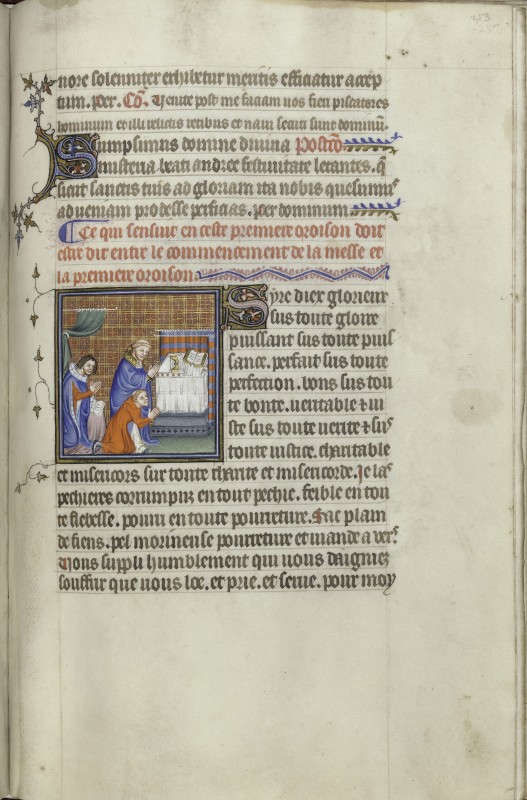 213
nore solenniter exhibetur meritis efficiatur accep
tum. per. Cō. Venite post me faciam uos fieri piscatores
hominum et illi relictis retibus et naui secuti sunt dominū.
Sumpsimus domine diuina Postcō
misteria beati andree festiuitate letantes. q̄
sicut sanctis tuis ad gloriam ita nobis quesumꝰ
ad ueniam prodesse perficias. per dominum
Ce qui sensuit en ceste premiere oroison doit
estre dit entre le commencement de la messe et
la premiere oroison.
Syre diex glorieux
sus toute gloire
puissant sus toute puis
sance. perfait sus toute
perfection. bons sus tou
te bonte. ueritable ⁊ iu
ste sus toute uerite ⁊ sus
toute iustice. charitable
et misericors sur toute charite et misericorde. Je las
pechieres corrumpuz en tout pechie. feible en tou
te flebesse. pourri en toute pourreture. Sac plain
de fiens. pel morineuse pourreture et uiande a uers
Vous suppli humblement qui uous daigniez
souffrir que uous loe. et prie. et serue. pour moy